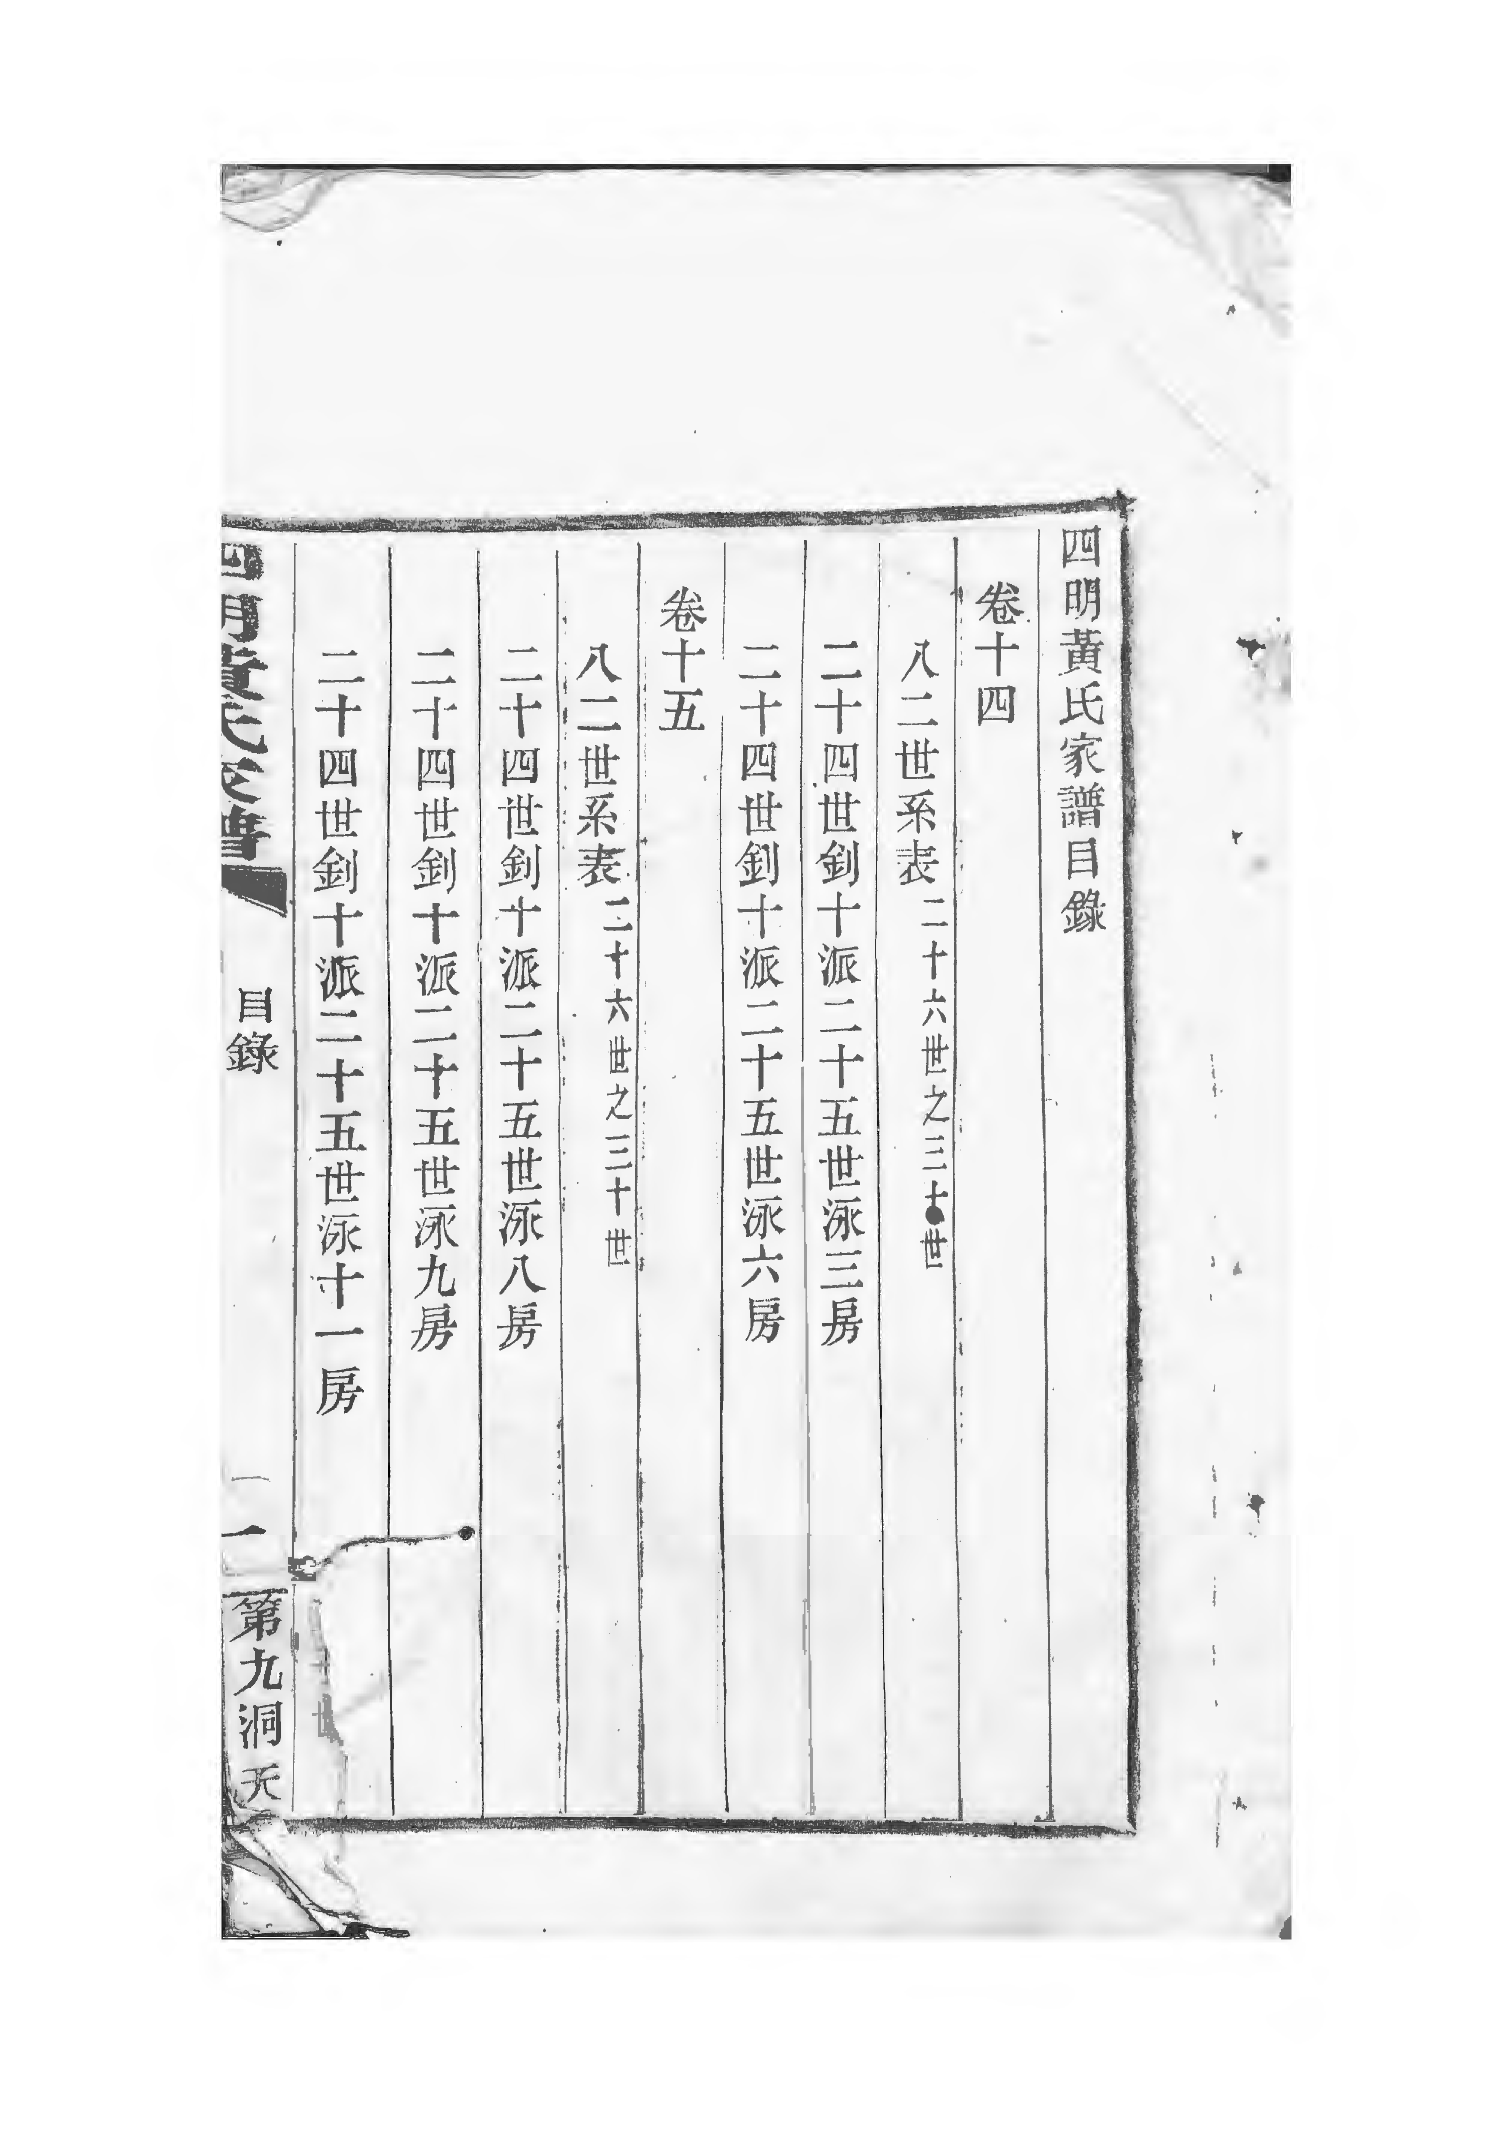 四明黃氏家譜目錄
卷十四
八二世系表二十六世之三十世
二十四世釗十派二十五世泳三房
二十四世釗十派二十五世泳六房
卷十五
八二世系表二十六世之三十世
二十四世釗十派二十五世泳八房
二十四世釗十派二十五世泳九房
二十四世釗十派二十五世泳十一房
四明黃氏家譜
目錄
一
第九洞天